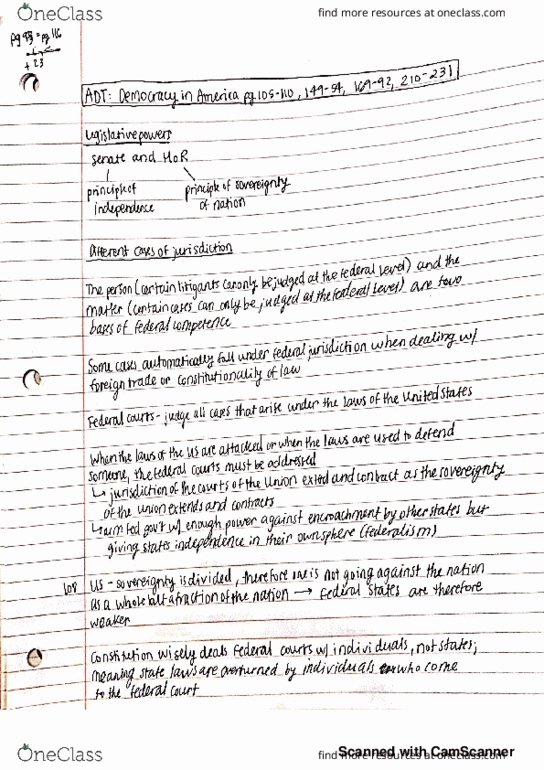 OneClass
find more resources at oneclass.com
pg 93 = pg 116
+ 23
ADT: Democracy in America pg. 105-110, 149-54, 169-92, 210-231
Legislative powers
Senate and HoR
principle of independence
principle of sovereignty of nation
Different cases of jurisdiction
The person (certain litigants can only be judged at the federal level) and the
matter (certain cases can only be judged at the federal level) are two
bases of federal competence
Some cases automatically fall under federal jurisdiction when dealing w/
foreign trade or constitutionality of law
Federal courts - judge all cases that arise under the laws of the United States
When the laws of the US are attacked or when the laws are used to defend
someone, the federal courts must be addressed
↳ jurisdiction of the courts of the Union extend and contract as the sovereignty
of the union extends and contracts
↳ fed gov't w/ enough power against encroachment by other states but
giving states independence in their own sphere (federalism)
108 US - sovereignty is divided, therefore one is not going against the nation
as a whole but a fraction of the nation → federal states are therefore
weaker
Constitution wisely deals federal courts w/ individuals, not states;
meaning state laws are overturned by individuals who come
to the federal court
OneClass
find more resources at oneclass.com
Scanned with CamScanner